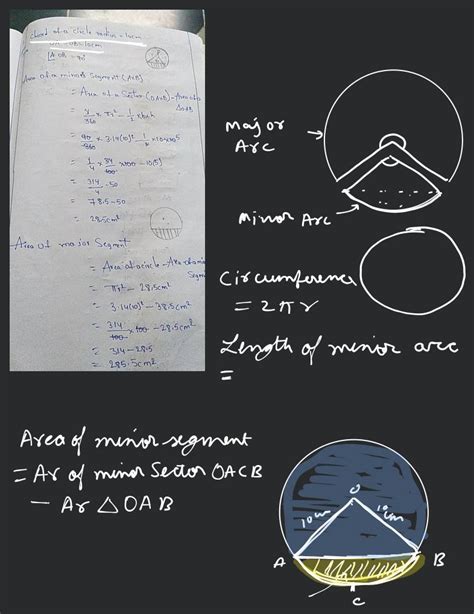 chord of a circle radius = 10cm
OA = OB = 10cm
∠AOB = 90°
Area of a minor Segment (AXB)
= Area of a Sector (OAXB) - Area of a
ΔOAB
= x/360 × πr² - 1/2 × b×h
= 90/360 × 3.14(10)² -
= 314/4 - 50
= 78.5 - 50
= 28.5cm²
Area of major Segment
= Area of a circle - Area of a minor
Segm
= πr² - 28.5cm²
= 3.14(10)² - 38.5cm²
= 314/100 × 100 - 28.5cm²
= 314 - 28.5
= 285.5cm²
Major
Arc
Minor Arc
Circumference
= 2πr
Length of minor arc
=
Area of minor segment
= Ar of minor Sector OACB
- Ar △OAB
O
10cm
10cm
A
B
C